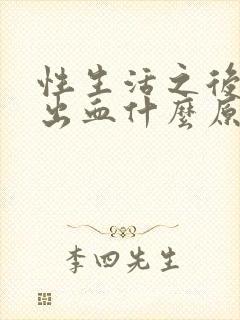 性生活之後
出血什麼原
李四先生